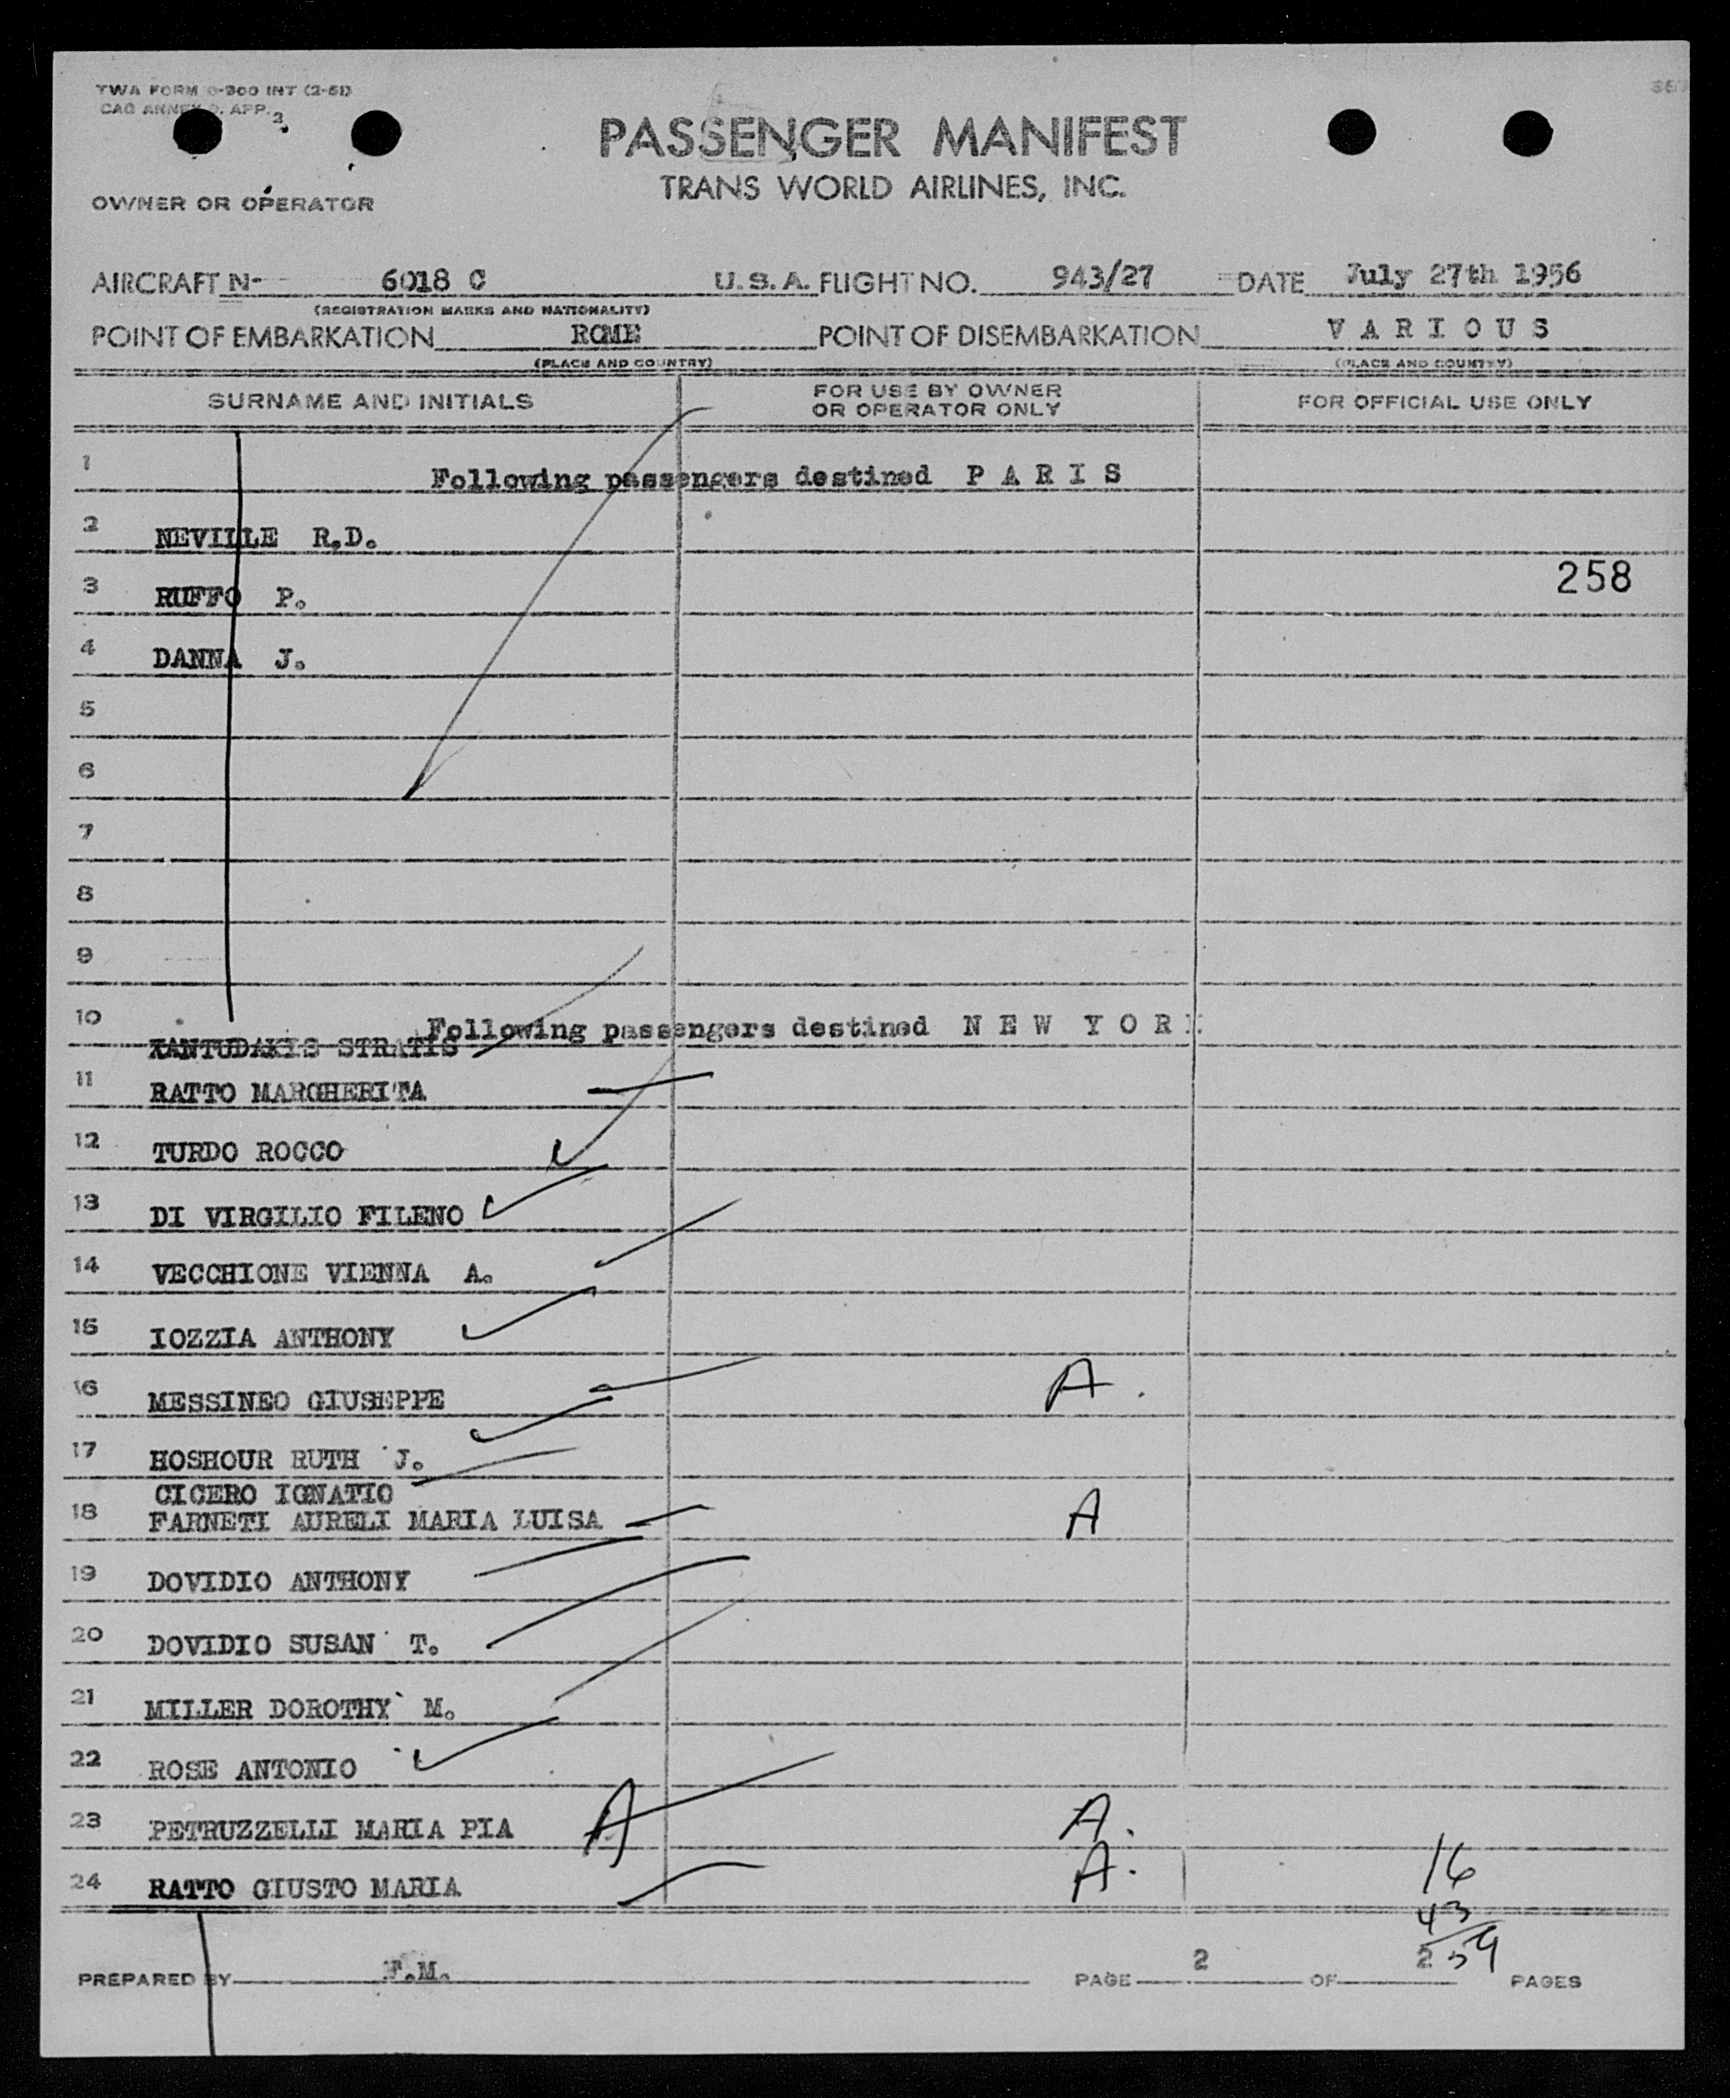 TWA FORM O-300 INT (2-51)
CAG ANNEX 9, APP. 3
PASSENGER MANIFEST
TRANS WORLD AIRLINES, INC.
OWNER OR OPERATOR
AIRCRAFT N- 6018 C U.S.A. FLIGHT NO. 943/27 DATE July 27th 1956
(REGISTRATION MARKS AND NATIONALITY)
POINT OF EMBARKATION ROME POINT OF DISEMBARKATION VARIOUS
(PLACE AND COUNTRY) (PLACE AND COUNTRY)
SURNAME AND INITIALS FOR USE BY OWNER OR OPERATOR ONLY FOR OFFICIAL USE ONLY
1 Following passengers destined PARIS
2 NEVILLE R.D.
3 RUFFO P. 258
4 DANNA J.
5
6
7
8
9
10 Following passengers destined NEW YORK
XANTUDAKIS STRATIS
11 RATTO MARGHERITA
12 TURDO ROCCO
13 DI VIRGILIO FILENO
14 VECCHIONE VIENNA A.
15 IOZZIA ANTHONY
16 MESSINEO GIUSEPPE A.
17 HOSHOUR RUTH J.
CICERO IGNATIO
18 FARNETI AURELI MARIA LUISA A
19 DOVIDIO ANTHONY
20 DOVIDIO SUSAN T.
21 MILLER DOROTHY M.
22 ROSE ANTONIO
23 PETRUZZELLI MARIA PIA A A.
24 RATTO GIUSTO MARIA A. 16
43
59
PREPARED BY F.M. PAGE 2 OF 2 PAGES